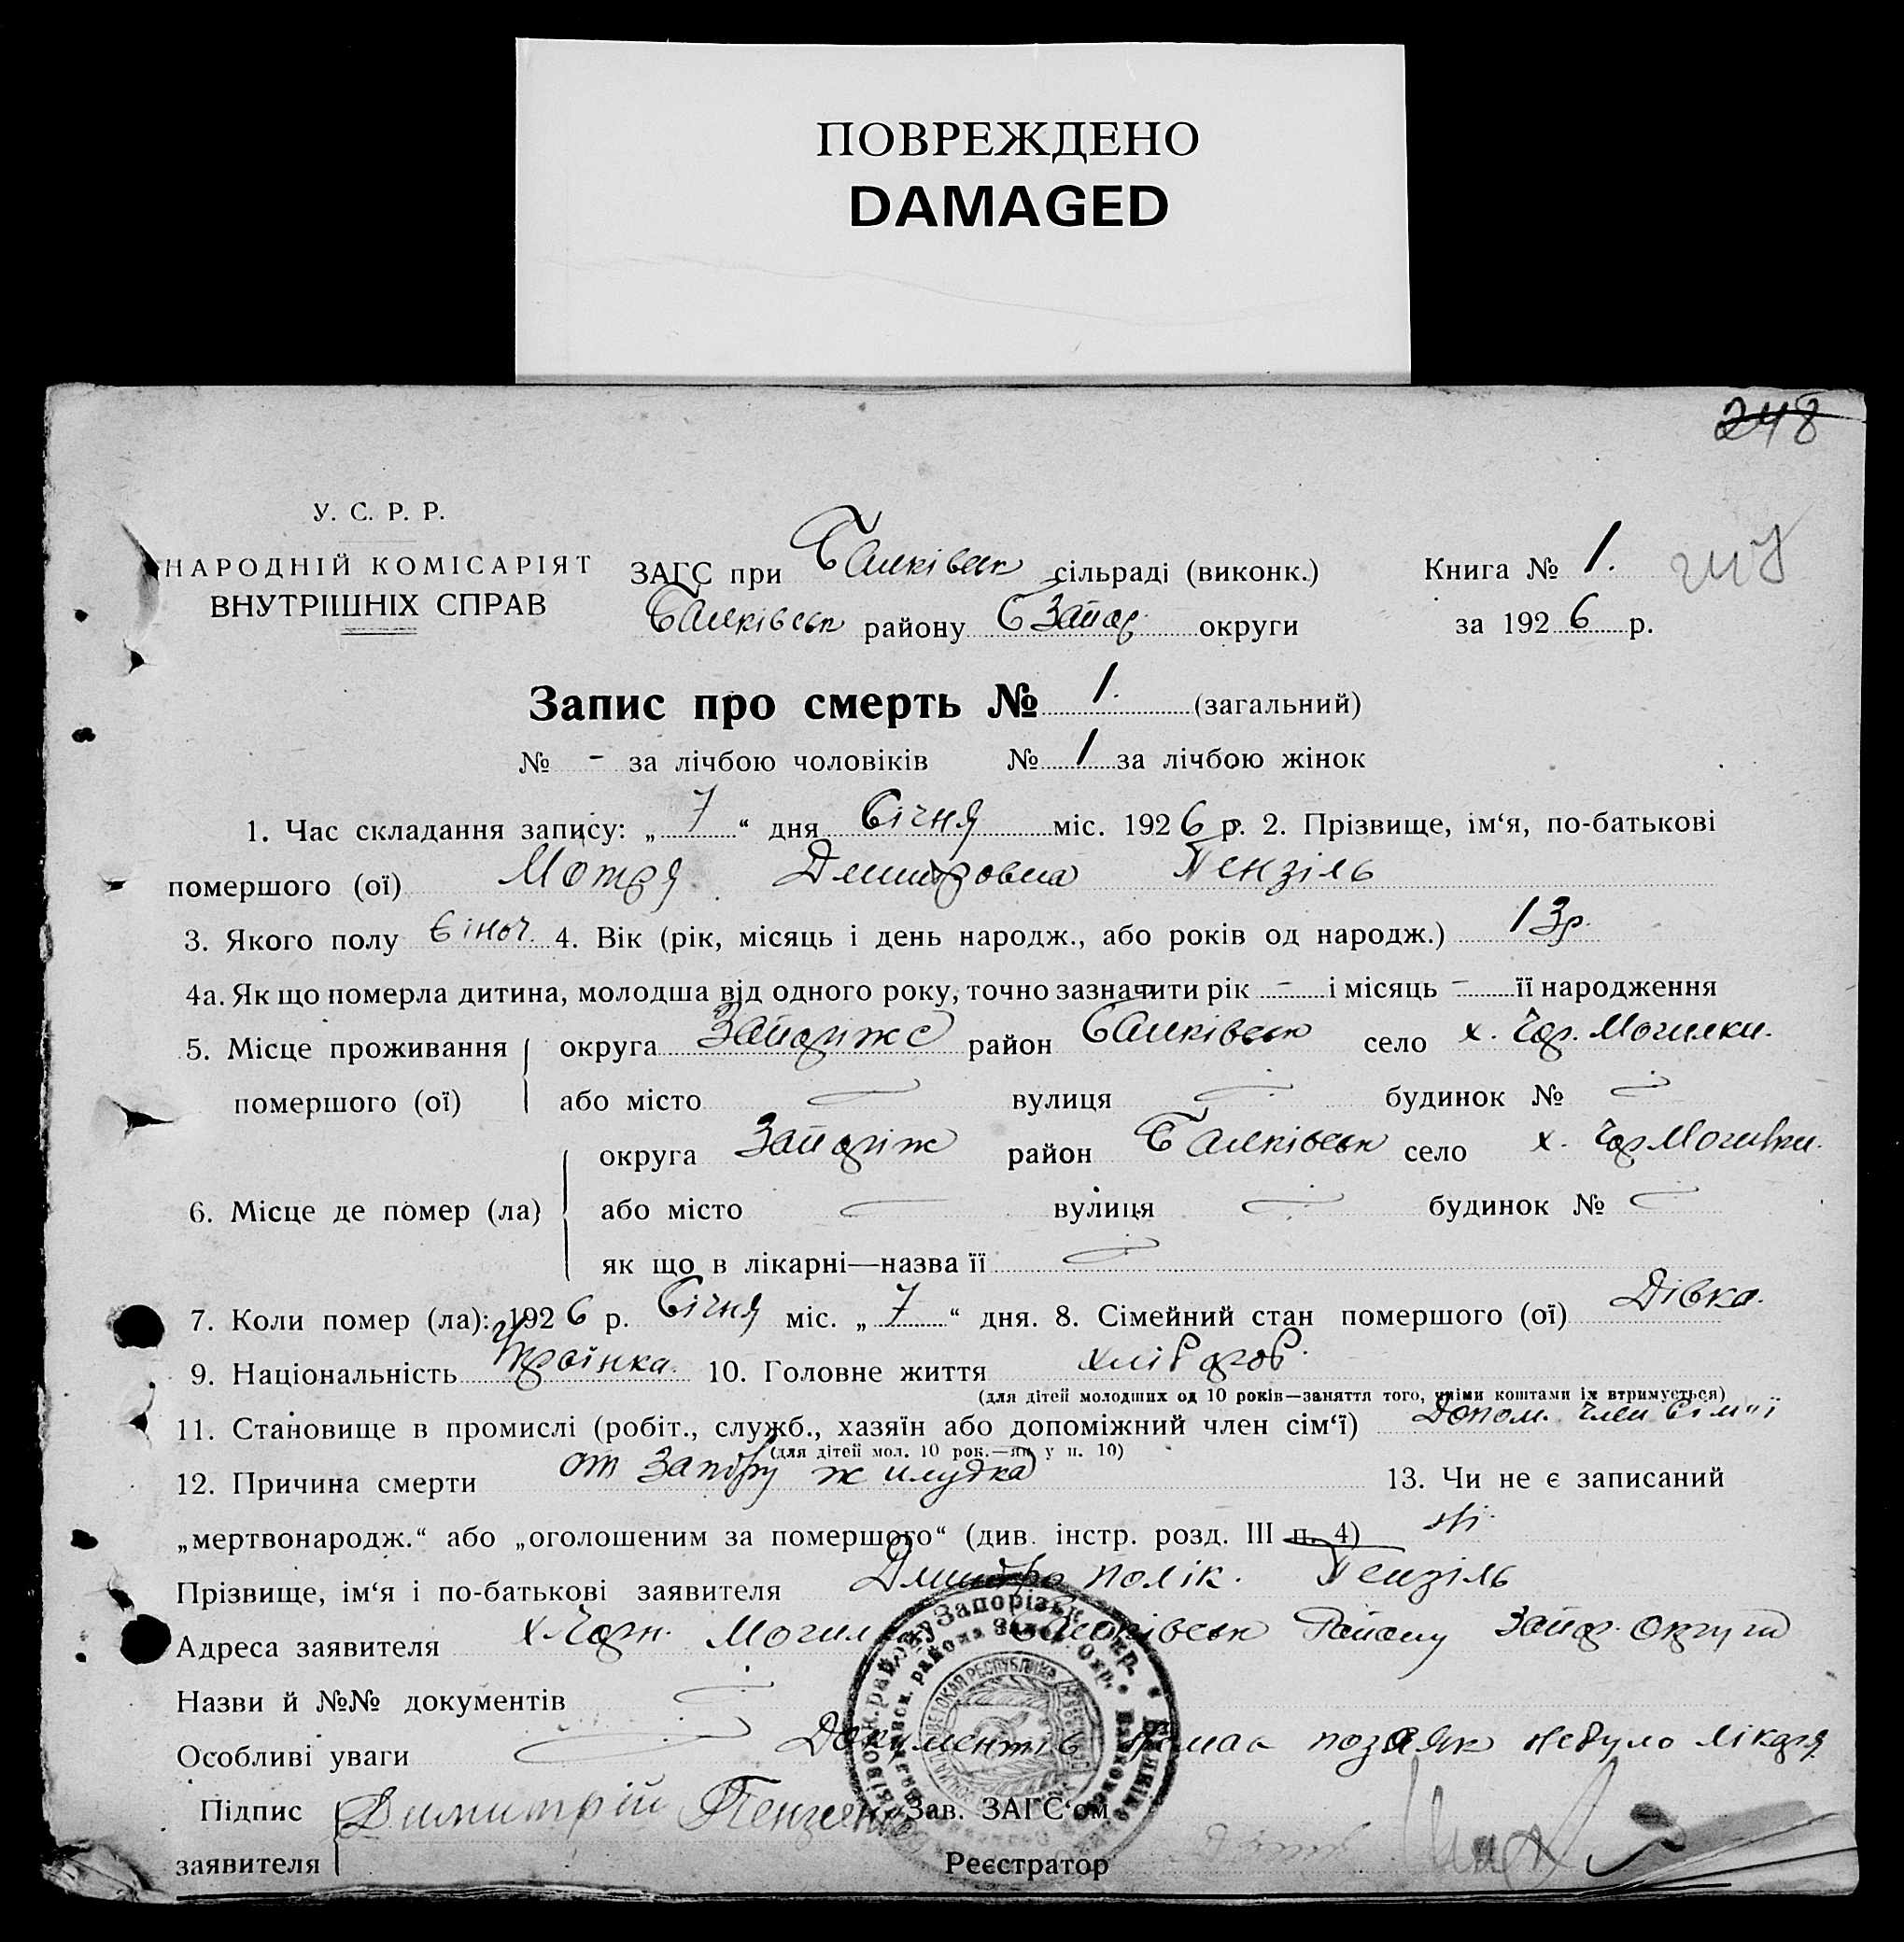 ПОВРЕЖДЕНО
DAMAGED
248
У. С. Р. Р.
НАРОДНІЙ КОМІСАРІЯТ
ВНУТРІШНІХ СПРАВ
ЗАГС при Балківськ сільраді (виконк.)
Балківськ району Запор. округи
Книга № 1.
за 1926 р.
Запис про смерть № 1. (загальний)
№ - за лічбою чоловіків № 1 за лічбою жінок
1. Час складання запису: „ 7 “ дня Січня міс. 1926 р. 2. Прізвище, ім‘я, по-батькові
помершого (ої) Мотря Дмитровна Пензіль
3. Якого полу жіноч. 4. Вік (рік, місяць і день народж., або років од народж.) 13р.
4а. Як що померла дитина, молодша від одного року, точно зазначити рік - і місяць - її народження
5. Місце проживання округа Запоріжс район Балківськ село х. Чор. Могилки.
помершого (ої) або місто вулиця будинок №
округа Запоріж район Балківськ село х. Чор Могилки.
6. Місце де помер (ла) або місто вулиця будинок №
як що в лікарні—назва її
7. Коли помер (ла): 1926 р. Січня міс. „ 7 “ дня. 8. Сімейний стан помершого (ої) Дівка.
9. Національність Украінка. 10. Головне життя хлібороб.
(для дітей молодших од 10 років—заняття того, чиїми коштами їх втримується)
11. Становище в промислі (робіт., служб., хазяїн або допоміжний член сім‘ї) Допом. член сім'ї
(для дітей мол. 10 рок.—як у п. 10)
12. Причина смерти от жилудка 13. Чи не є записаний
„мертвонародж.“ або „оголошеним за помершого“ (див. інстр. розд. III п. 4) ні.
Прізвище, ім‘я і по-батькові заявителя Дмитро Полік. Пензіль
Адреса заявителя х. Чорн. Могил Балківськ Району Запор. Округи
Назви й №№ документів
Особливі уваги Документів немає позаяк небуло лікаря
Підпис Димитрій Зав. ЗАГС‘ом
заявителя Реєстратор